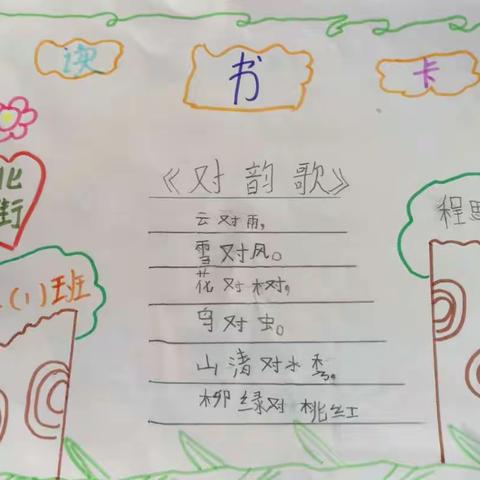 读 书 卡
北
街
(1)班
《对韵歌》
云对雨,
雪对风。
花对树,
鸟对虫。
山清对水秀。
柳绿对桃红
程